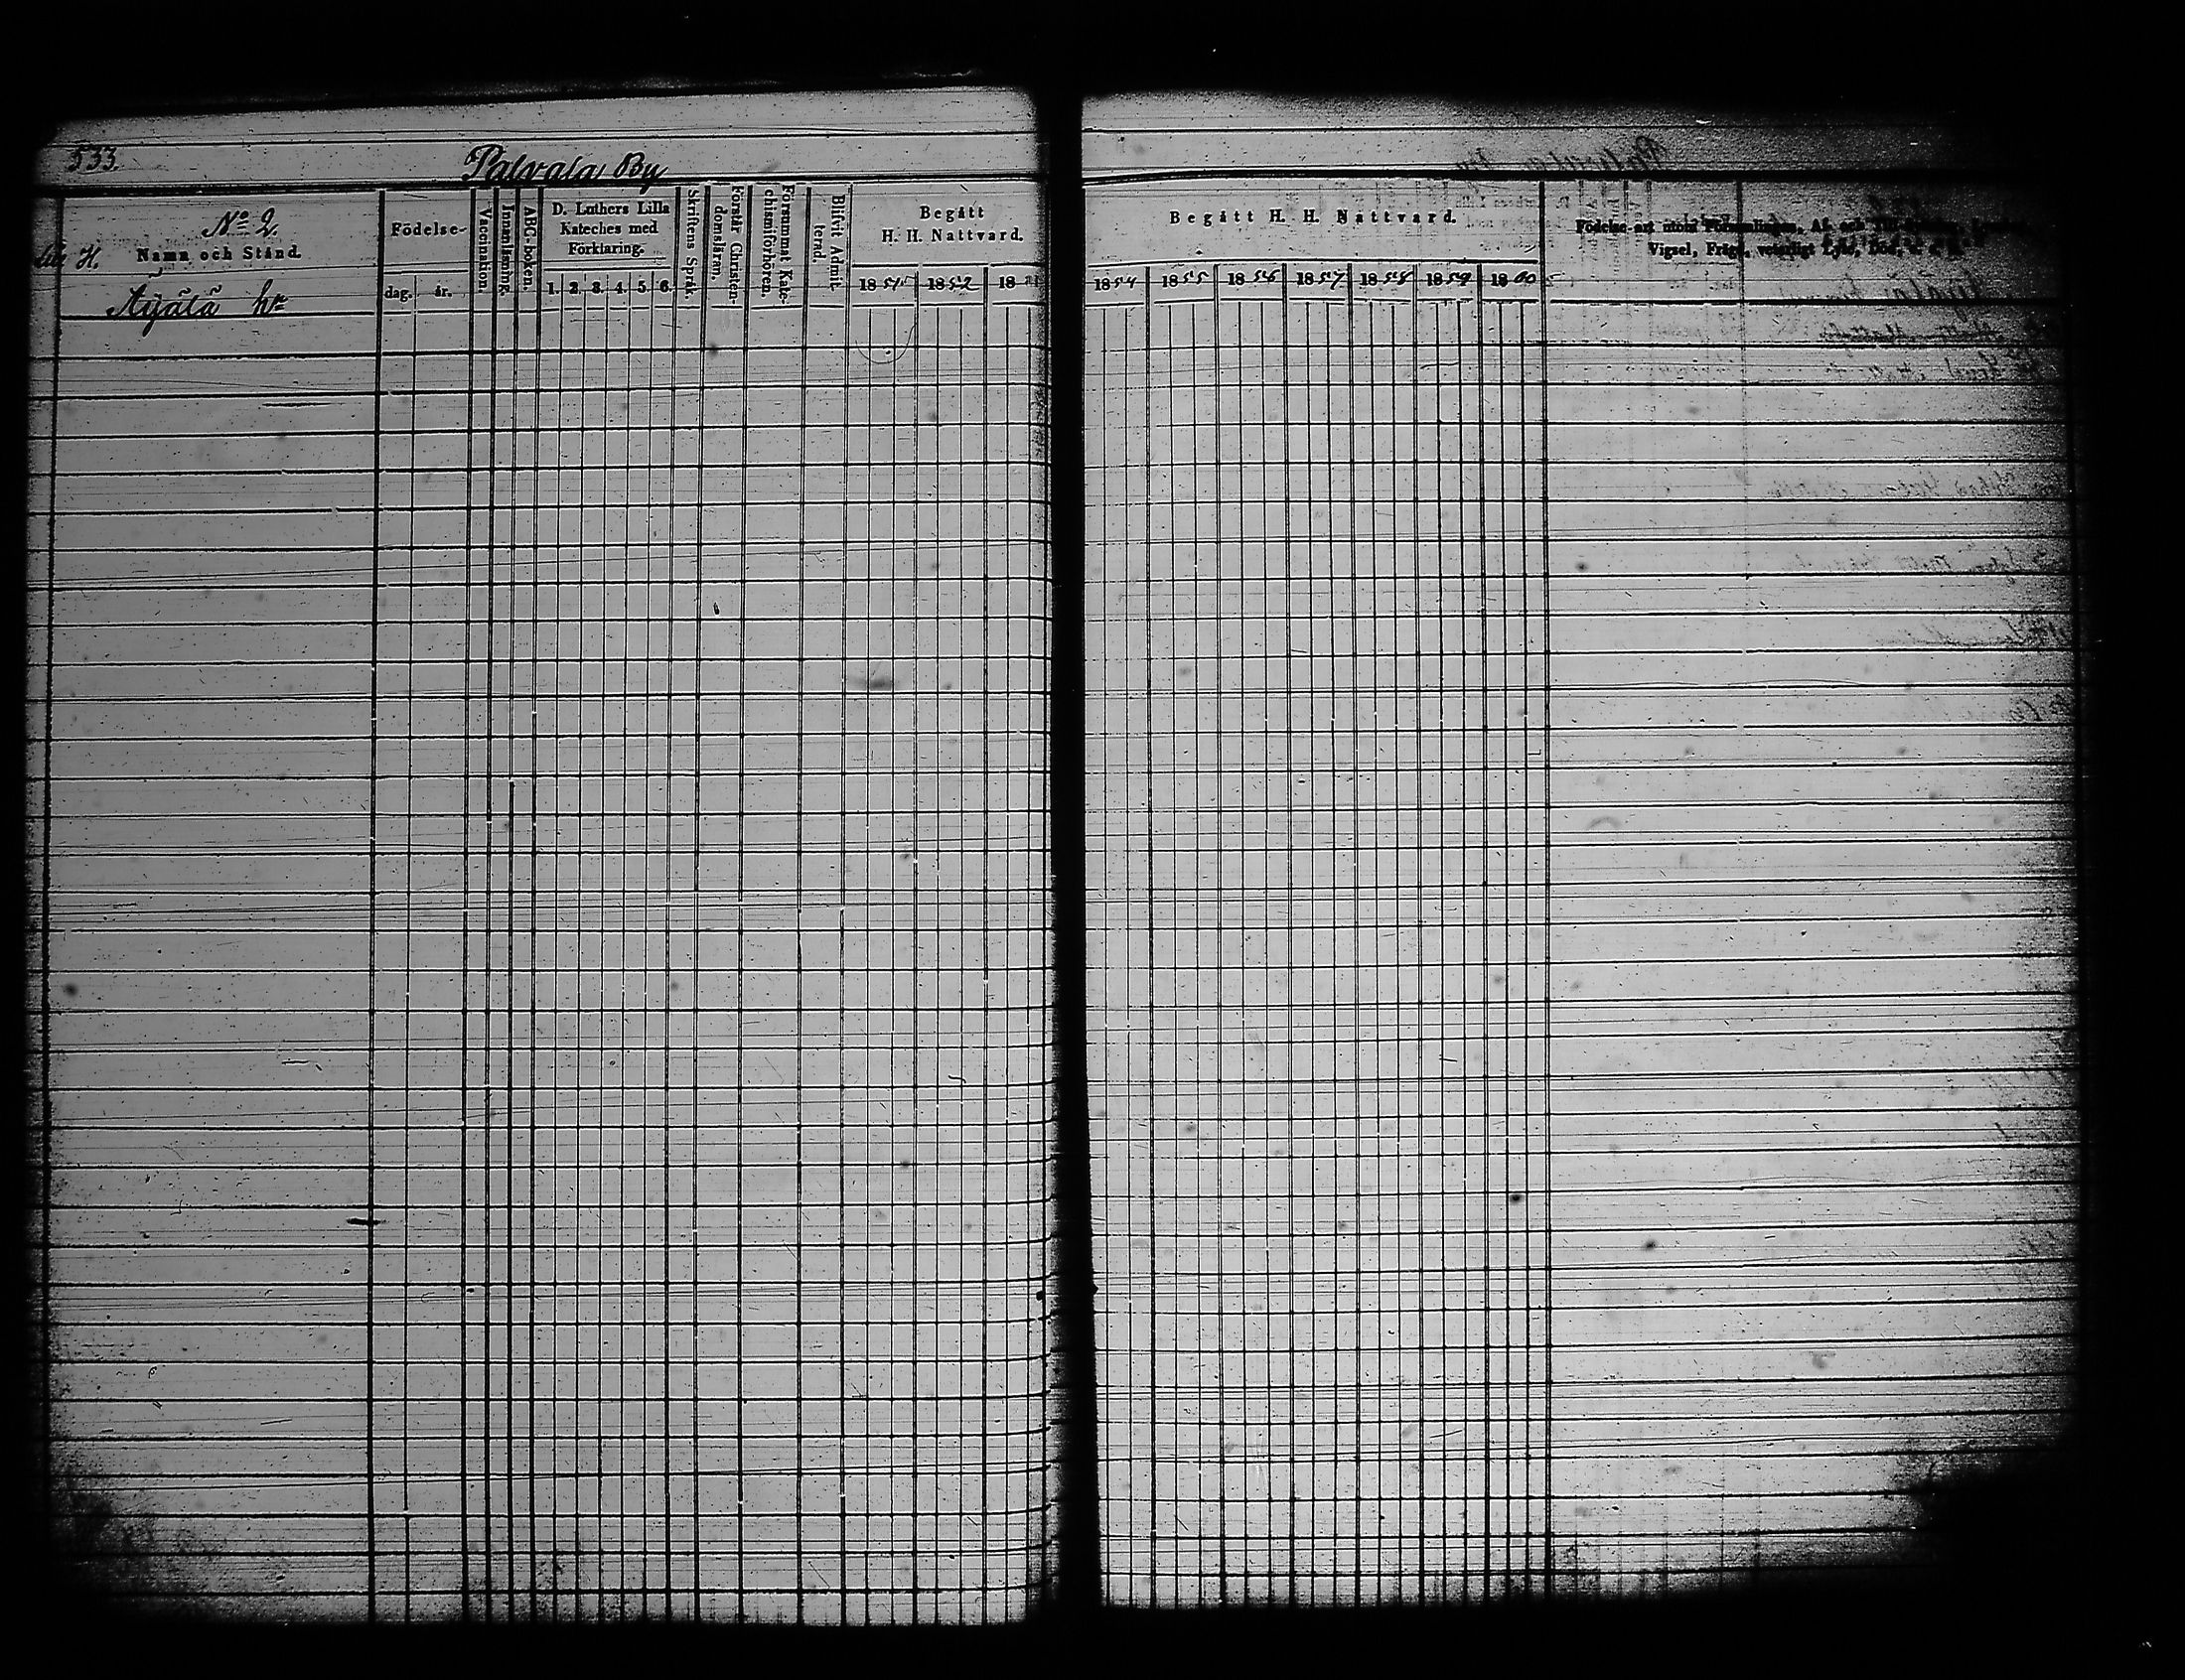 533.
Palvala By
No 2.
H.
Namn och Stånd.
Äijälä hn
Födelse-
dag. år.
Vaccination.
Innanläsning.
ABC-boken.
D. Luthers Lilla
Kateches med
Förklaring.
1. 2. 3. 4. 5. 6.
Skriftens Språk.
Förstår Christen-
domsläran.
Försummat Kate-
chismiförhören.
Blifvit Admit-
terad.
Begått
H. H. Nattvard.
1851 1852 18
Begått H. H. Nattvard.
1854 1855 1856 1857 1858 1859 1860
Födelse-ort utom Församlingen, Af- och
Vigsel, Fräjd, Lyte, Död,